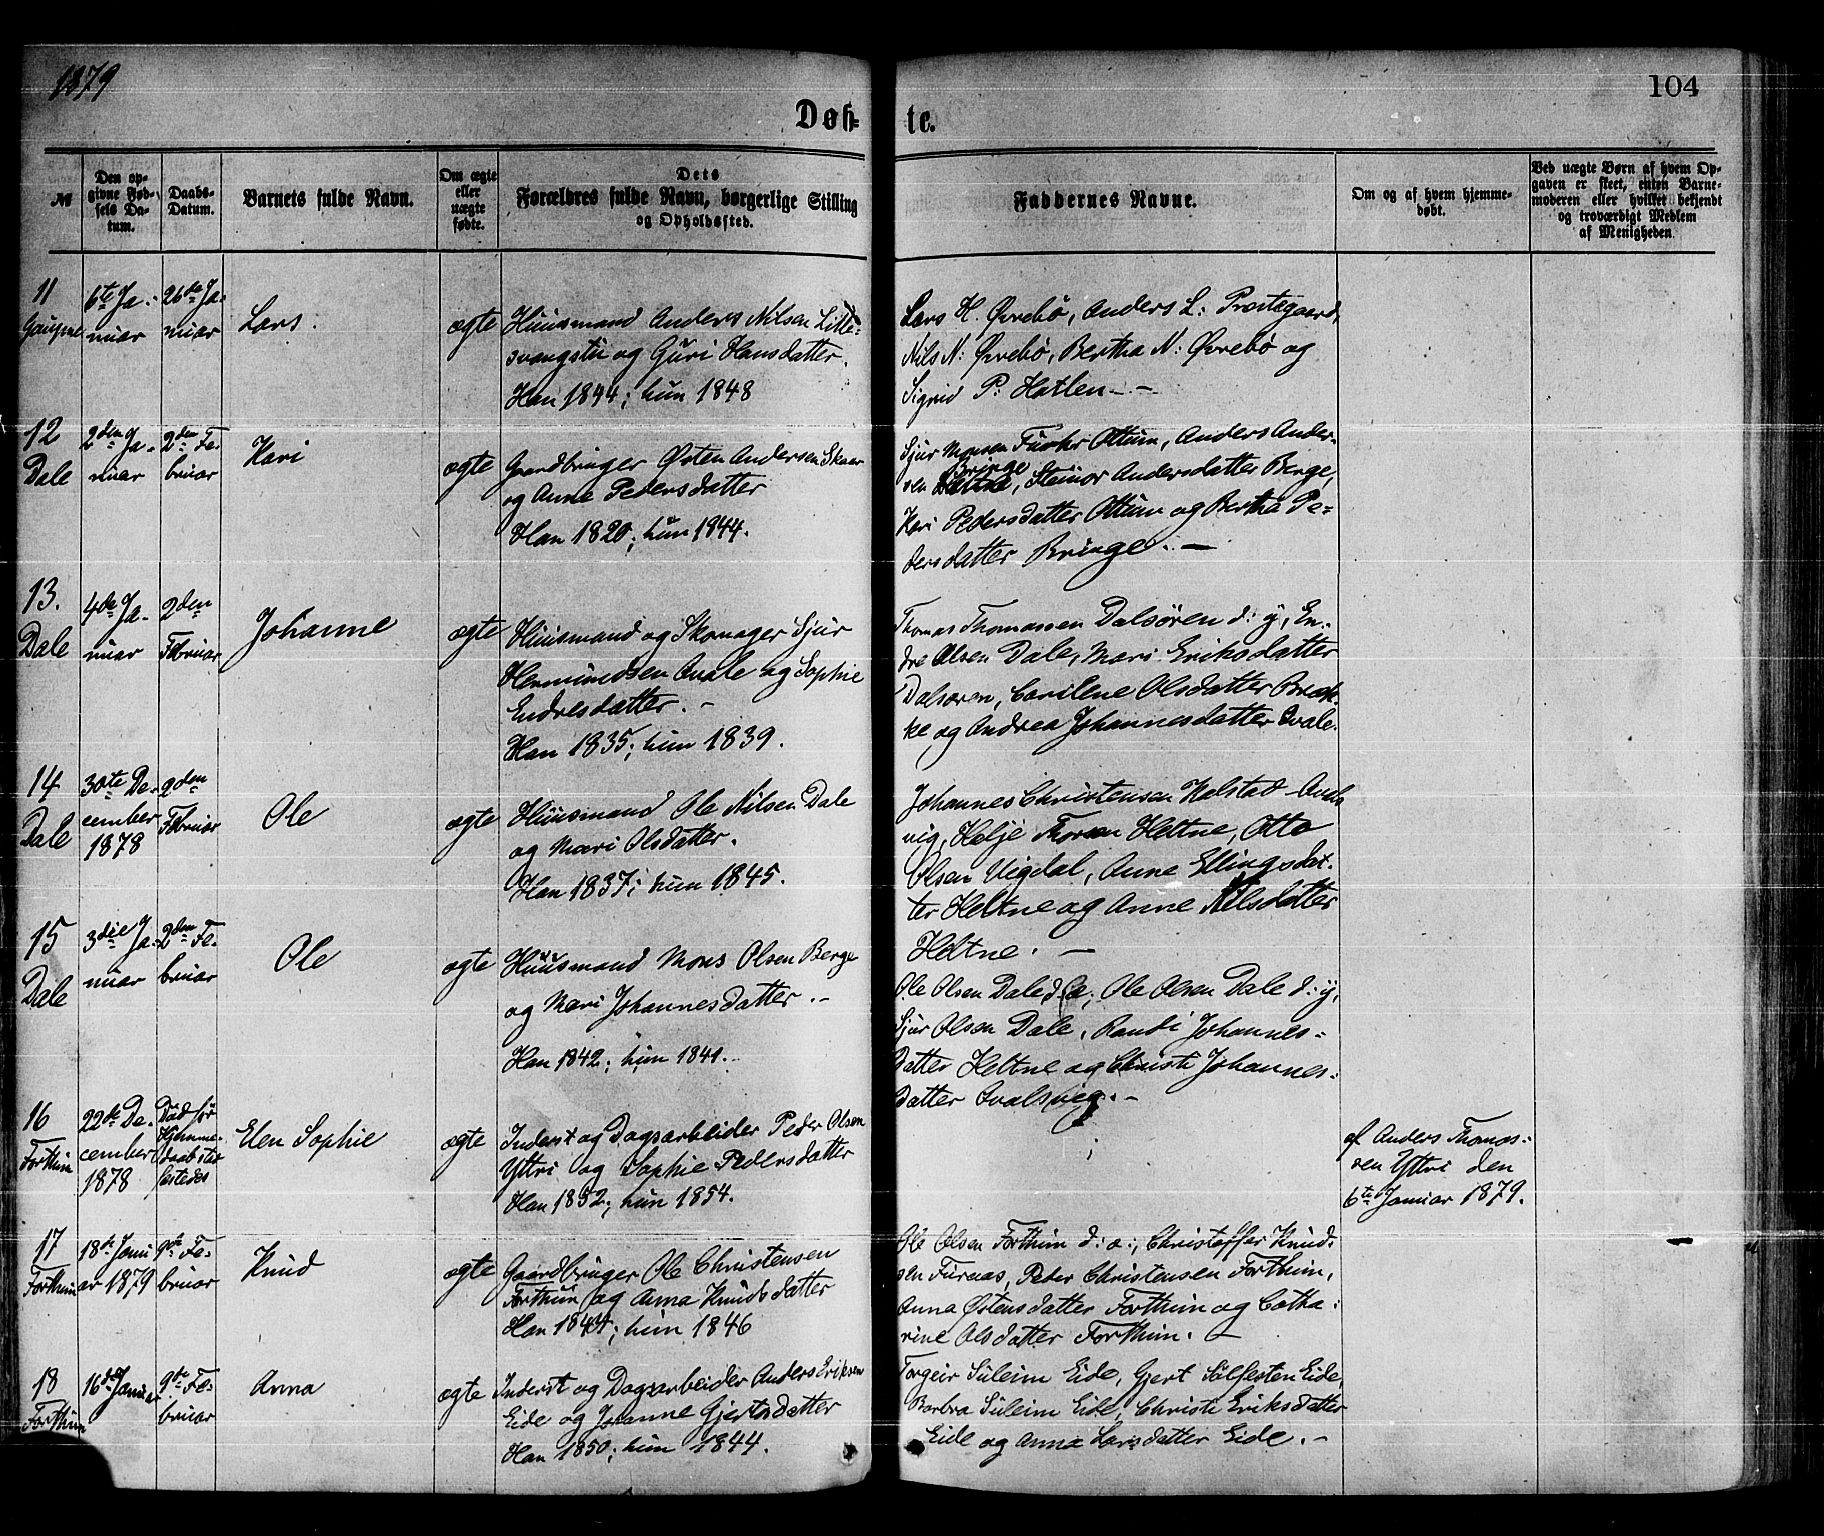 1879
104
Døb- te.
№
Den op-
givne Fød-
sels Da-
tum.
Daabs-
Datum.
Barnets fulde Navn.
Om ægte
eller
uægte
fødte.
Dets
Forældres fulde Navn, borgerlige Stilling
og Opholdssted.
Faddernes Navne.
Om og af hvem hjemme-
døbt.
Ved uægte Børn af hvem Op-
gaven er skeet, enten Barne-
moderen eller hvilket bekjendt
og troværdigt Medlem
af Menigheden.
11
Gaupne
6te Ja-
nuar
26de Ja-
nuar
Lars.
ægte
Huusmand Anders Nilsen Lille-
svangstu og Guri Hansdatter.
Han 1844; hun 1848
Lars H. Øvrebø, Anders L: Prestegaard,
Nils N: Øvrebø, Bertha N: Øvrebø og
Sigrid P: Hatlen. -
12
Dale
2den Ja-
nuar
2den Fe-
bruar
Kari
ægte
Gaardbruger Østen Andersen Skaar
og Anne Pedersdatter
Han 1820; hun 1844.
Sjur Monsen Ottum, Anders Ander-
sen Bringe, Steinor Andersdatter Berge,
Kari Pedersdatter Ottum og Bertha Pe-
dersdatter Bringe. -
13.
Dale
4de Ja-
nuar
2den
Februar
Johanne
ægte
Huusmand og Skomager Sjur
Hermundsen Qvale og Sophie
Endresdatter. -
Han 1835; hun 1839.
Thomas Thomassen Dalsøren d: y, En-
dre Olsen Dale, Mari Eriksdatter
Dalsøren, Carilene Olsdatter Bræk-
ke og Andrea Johannesdatter Qvale.
14
Dale
30te De-
cember
1878
2den
Februar
Ole
ægte
Huusmand Ole Nilsen Dale
og Mari Olsdatter.
Han 1837; hun 1845.
Johannes Christensen Kalstad
vig, Helje Heltne, Otto
Olsen Vigdal, Anne Ellingsdat-
ter Heltne og Anne Nilsdatter
Heltne. -
15
Dale
3die Ja-
nuar
2den Fe-
bruar
Ole
ægte
Huusmand Mons Olsen Berge
og Mari Johannesdatter. -
Han 1842; hun 1841.
Ole Olsen Dale d. æ, Ole Olsen Dale d: y,
Sjur Olsen Dale, Randi Johannes-
datter Heltne og Christi Johannes-
datter Qvalsvig. -
16
Forthun
22de De-
cember
1878
Død før
Hjemme-
daab
festedes
Elen Sophie
ægte
Inderst og Dagsarbeider Peder Olsen
Yttri og Sophie Pedersdatter
Han 1852; hun 1854.
af Anders Thomas-
sen Yttri den
6te Januar 1879.
17
Forthun
18de Janu-
ar 1879
9de Fe-
bruar
Knud
ægte
Gaardbruger Ole Christensen
Forthun og Anna Knudsdatter
Han 1844; hun 1846
Ole Olsen Forthun d: æ:, Christoffer Knud-
sen Furaas, Peder Christensen Forthun,
Anna Østensdatter Forthun og Catha-
rine Olsdatter Forthun. -
18
Forthun
16de Januar
9de Fe-
bruar
Anna
ægte
Inderst og Dagsarbeider Anders Eriksen
Eide og Johanne Gjertsdatter
Han 1850; hun 1844.
Torgeir Suleim Eide, Gjert Sølfesten Eide,
Barbra Suleim Eide, Christi Eriksdatter
Eide og Anna Larsdatter Eide. -